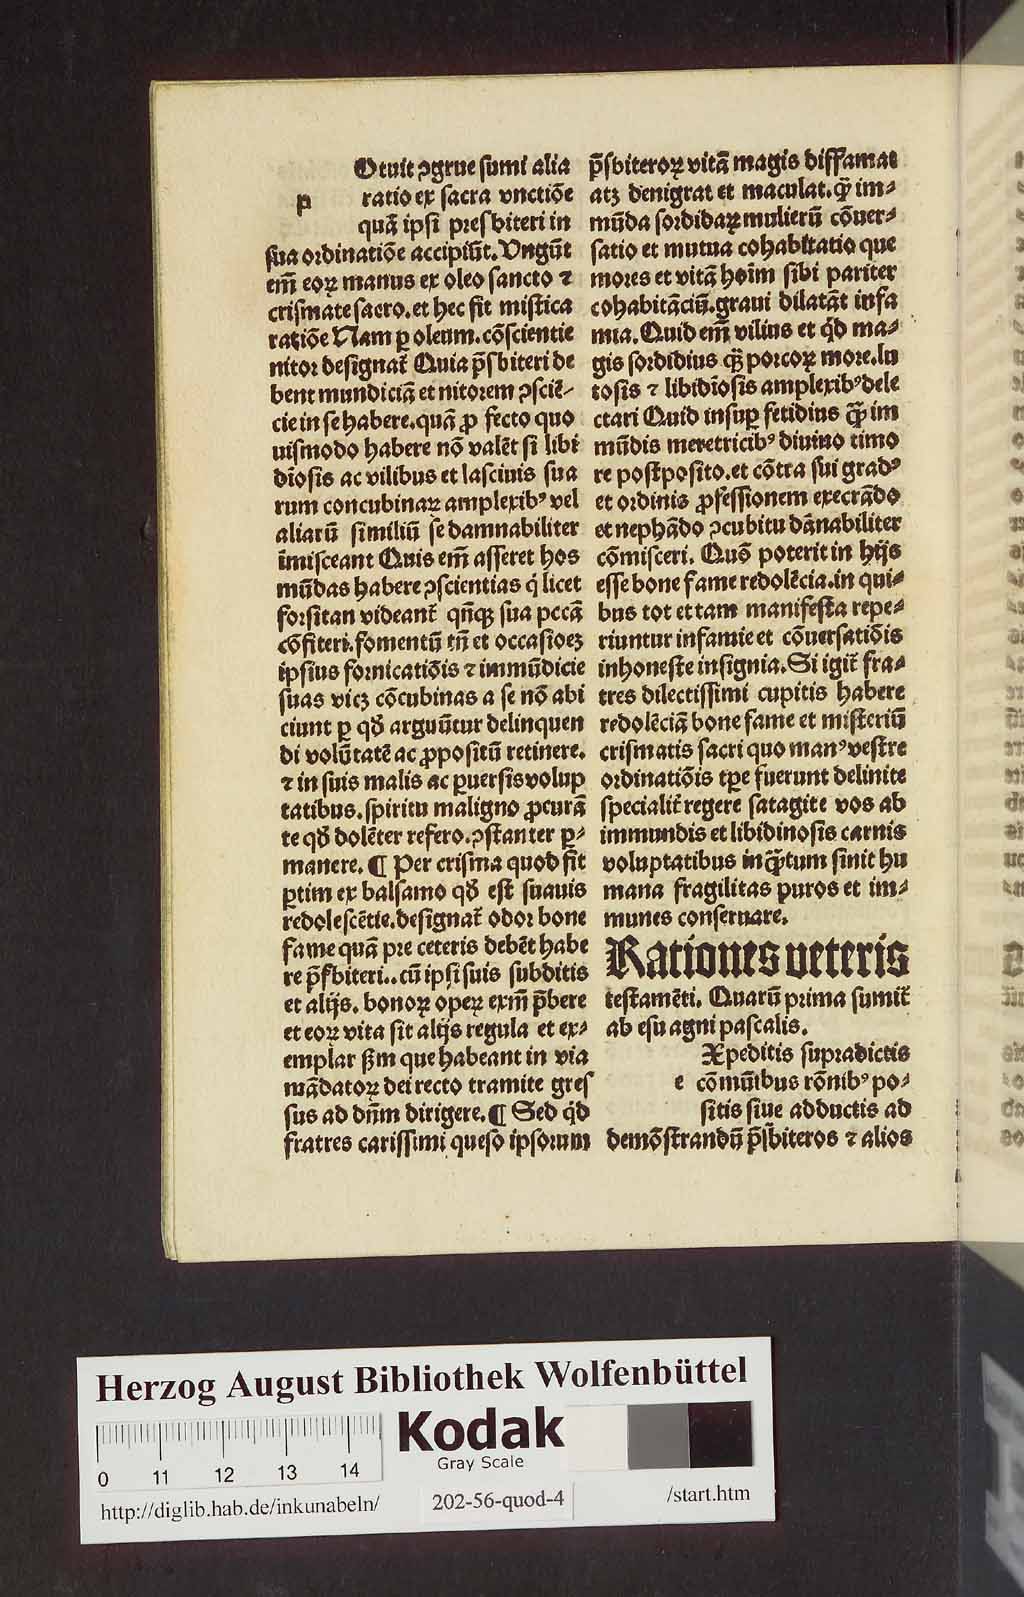 Otuit ꝯgrue sumi alia
p ratio ex sacra vnctiõe
quã ipsi presbiteri in
sua ordinatiõe accipiũt. Vngũt
em̃ eoꝝ manus ex oleo sancto ⁊
crismate sacro. et hec fit mistica
ratiõe Nam ꝑ oleum. cõscientie
nitor designat̃ Quia p̃sbiteri de
bent mundiciã et nitorem ꝯsciẽ-
cie in se habere. quã ꝓ fecto quo
uismodo habere nõ valẽt si libi
dĩosis ac vilibus et lasciuis sua
rum concubinaꝝ amplexibꝰ vel
aliarũ similiũ se damnabiliter
ĩmisceant Quis em̃ asseret hos
mũdas habere ꝯscientias q̇ licet
forsitan videant̃ qñqꝫ sua pccã
cõfiteri. fomentũ tñ et occasioeꝫ
ipsius fornicatiõis ⁊ immũdicie
suas vicꝫ cõcubinas a se nõ abi
ciunt ꝑ qđ arguũtur delinquen
di volũtatẽ ac ꝓpositũ retinere.
⁊ in suis malis ac ꝑuersis volup
tatibus. spiritu maligno ꝓcurã
te qđ dolẽter refero. ꝯstanter ꝑ-
manere. ¶ Per crisma quod fit
ꝑtim ex balsamo qđ est suauis
redolescẽtie. designat̃ odor bone
fame quã pre ceteris debẽt habe
re p̃sbiteri.. cũ ipsi suis subditis
et alijs. bonoꝝ opeꝝ exm̃ p̃bere
et eoꝝ vita sit alijs regula et ex-
emplar ẞm que habeant in via
mãdatoꝝ dei recto tramite gres
sus ad dñm dirigere. ¶ Sed q̇d
fratres carissimi queso ipsorum
p̃sbiteroꝝ vitã magis diffamat
atꝫ denigrat et maculat. q̃ im-
mũda sordidaꝝ mulierũ cõuer-
satio et mutua cohabitatio que
mores et vitã hoĩm sibi pariter
cohabitãciũ. graui dilatãt infa
mia. Quid em̃ vilius et q̇d ma-
gis sordidius qꝫ̃ porcoꝝ more. lu
tosis ⁊ libidĩosis amplexibꝰ dele
ctari Quid insuꝑ fetidius q̃ im
mũdis meretricibꝰ diuino timo
re postposito. et cõtra sui gradꝰ
et ordinis ꝓfessionem execrãdo
et nephãdo ꝯcubitu dãnabiliter
cõmisceri. Quõ poterit in hijs
esse bone fame redolẽcia. in qui-
bus tot et tam manifesta repe-
riuntur infamie et cõuersatiõis
inhoneste insignia. Si igit̃ fra-
tres dilectissimi cupitis habere
redolẽciã bone fame et misteriũ
crismatis sacri quo manꝰ vestre
ordinatiõis tꝑe fuerunt delinite
specialit̃ regere satagite vos ab
immundis et libidinosis carnis
voluptatibus in q̃tum sinit hu
mana fragilitas puros et im-
munes conseruare.
Rationes veteris
testamẽti. Quarũ prima sumit̃
ab esu agni pascalis.
Xpeditis supradictis
e cõmũibus rõnibꝰ po-
sitis siue adductis ad
demõstrandũ p̃sbiteros ⁊ alios
Herzog August Bibliothek Wolfenbüttel
Kodak
Gray Scale
0 11 12 13 14
http://diglib.hab.de/inkunabeln/ 202-56-quod-4 /start.htm